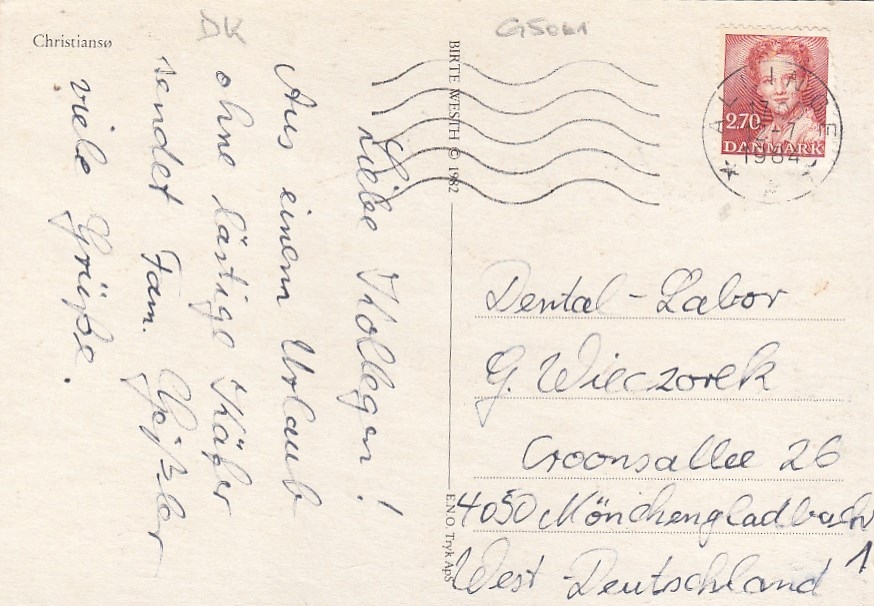 Christiansø
DK
G5061
BIRTE WESTH © 1982
E.N.O. Tryk ApS
Liebe Kollegen!
Aus einem Urlaub
ohne lästige Käfer
sendet Fam.
viele Grüße.
2.70
DANMARK
ALLINGE
1984
Dental-Labor
G. Wieczorek
Croonsallee 26
4050 Mönchengladbach
1
West-Deutschland